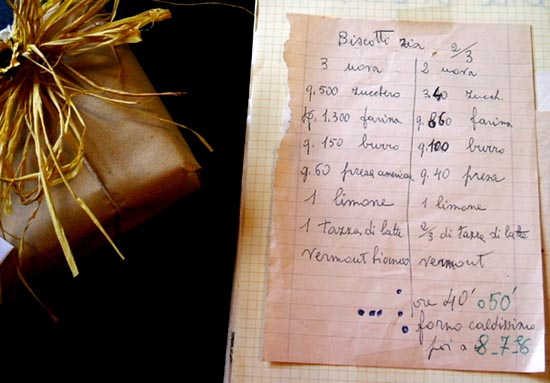 Biscotti zia 2/3
3 uova 2 uova
g. 500 zucchero 340 zucch.
kg. 1.300 farina g. 860 farina
g. 150 burro g. 100 burro
g. 60 presa american g. 40 presa
1 limone 1 limone
1 tazza di latte 2/3 di tazza di latte
vermout bianco vermout
ore 40' o 50'
forno caldissimo
poi a 8_7_6